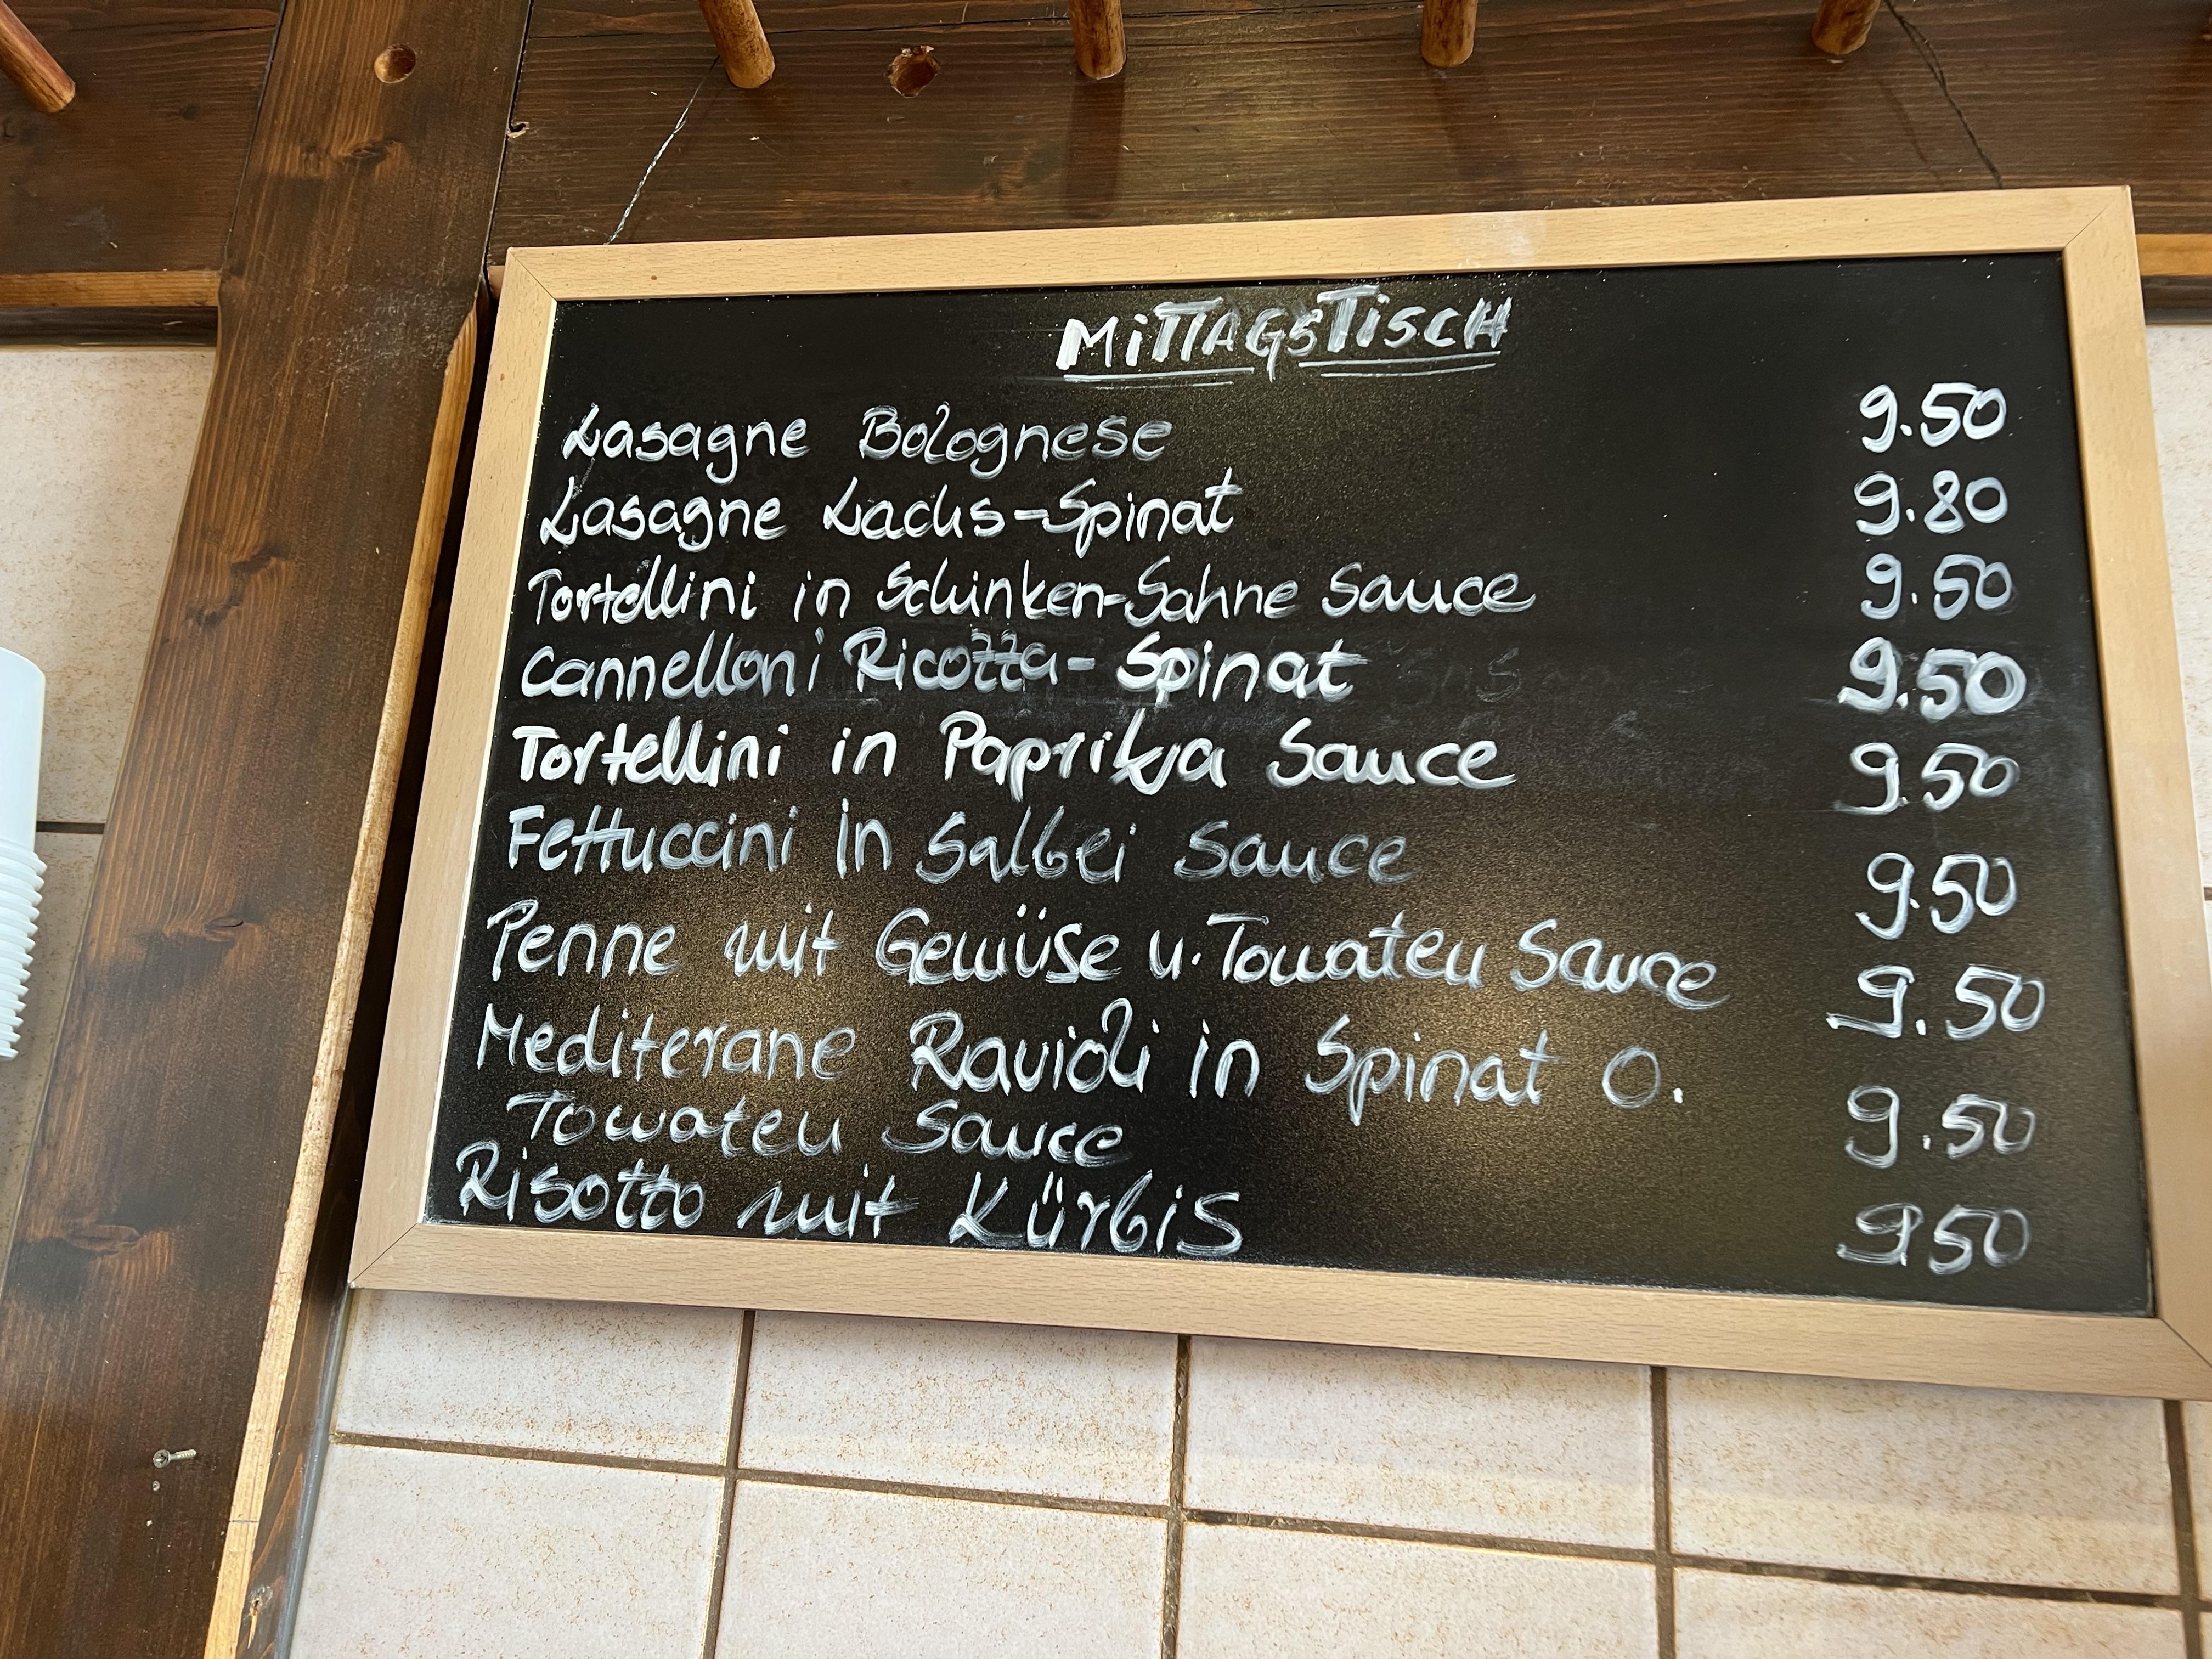 MITTAGSTISCH
Lasagne Bolognese 9.50
Lasagne Lachs-Spinat 9.80
Tortellini in Schinken-Sahne Sauce 9.50
Cannelloni Ricotta-Spinat 9.50
Tortellini in Paprika Sauce 9.50
Fettuccini In Salbei Sauce 9.50
Penne mit Gemüse u. Tomaten Sauce 9.50
Mediterane Ravioli in Spinat O.
Tomaten Sauce 9.50
Risotto mit Kürbis 950